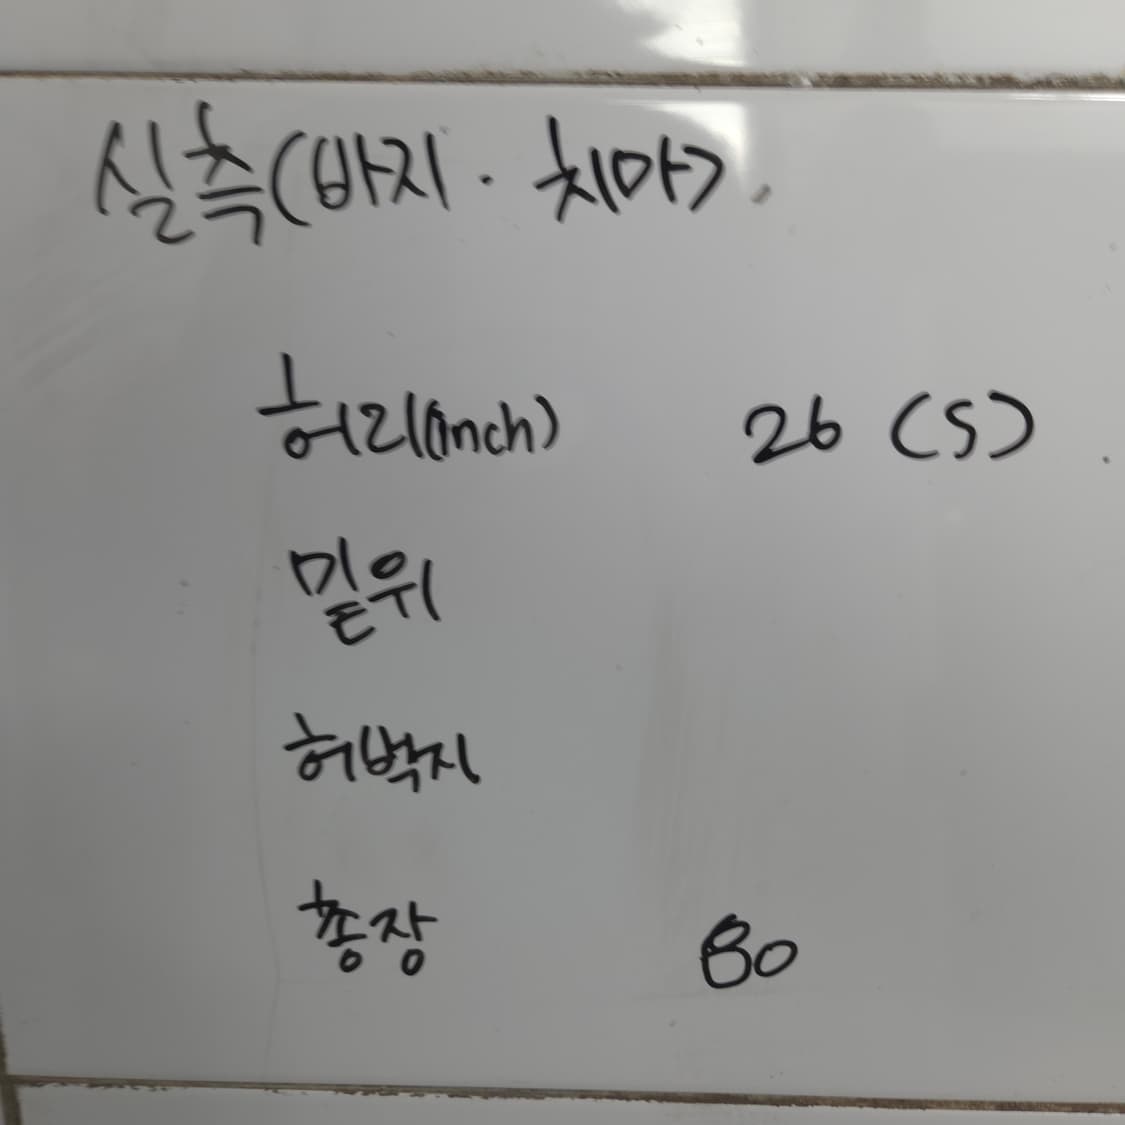 실측(바지·치마)
허리(inch) 26 (S)
밑위
허벅지
총장 80